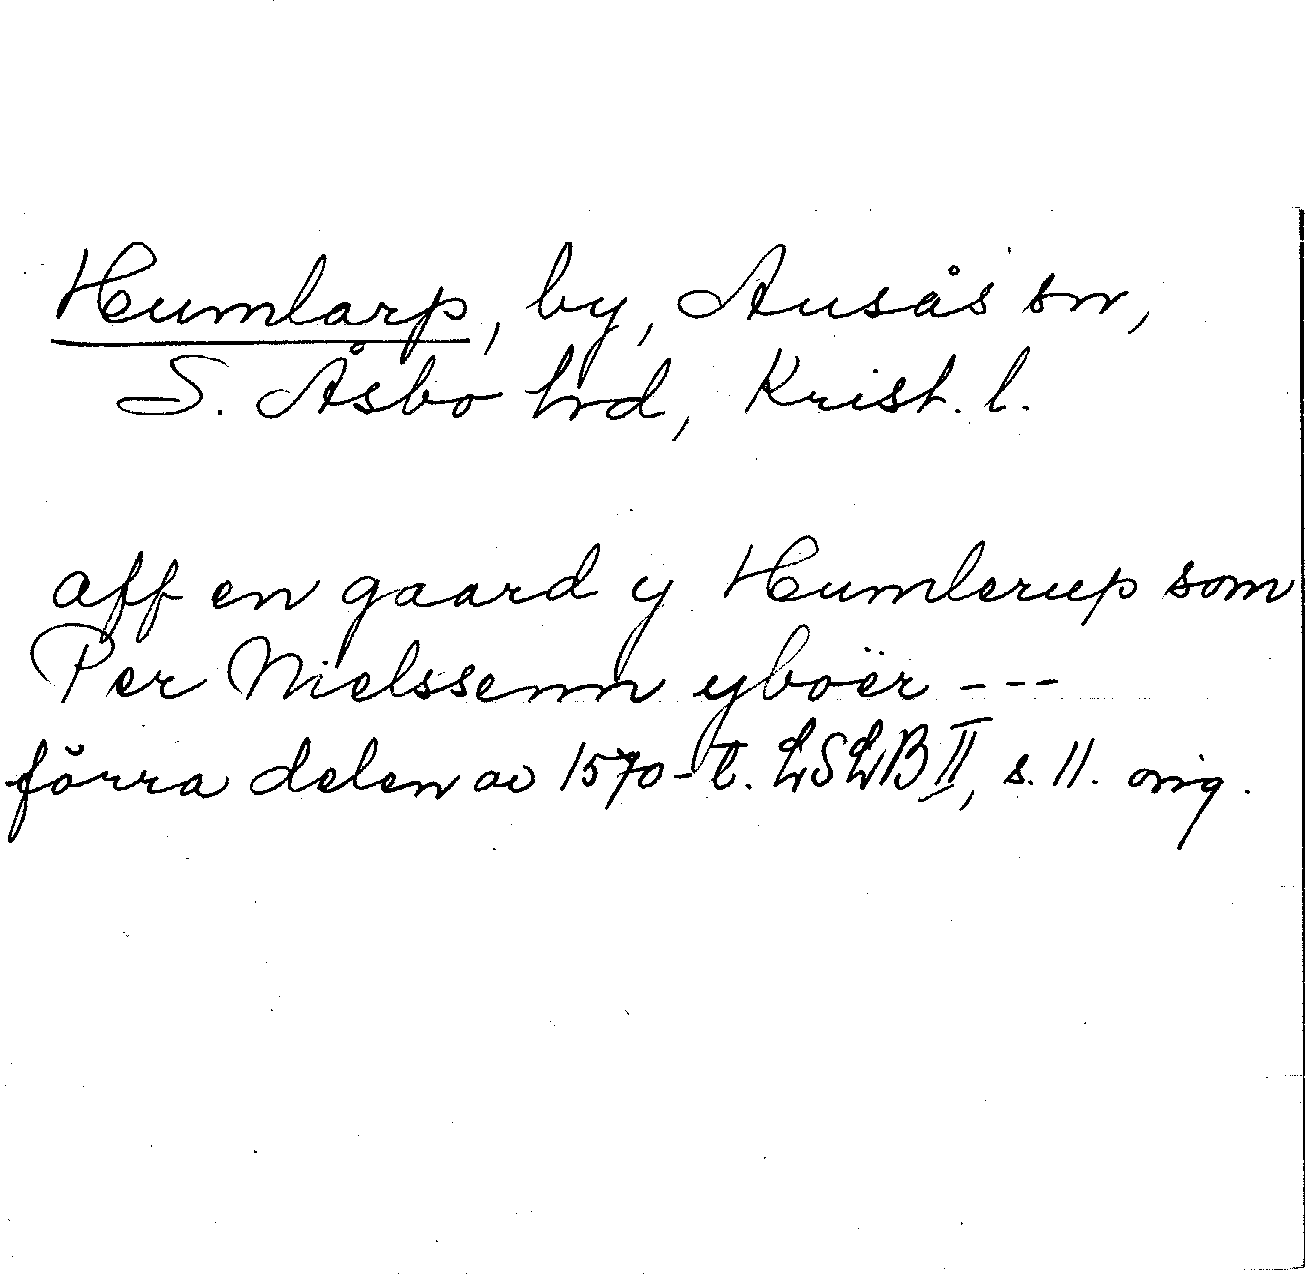 Humlarp, by, Ausås sn,
S. Åsbo hrd, Krist. l.
aff en gaard y Humlerup som
Per Nielssenn yboër ---
förra delen av 1570-t. LSLB II, s. 11. orig.